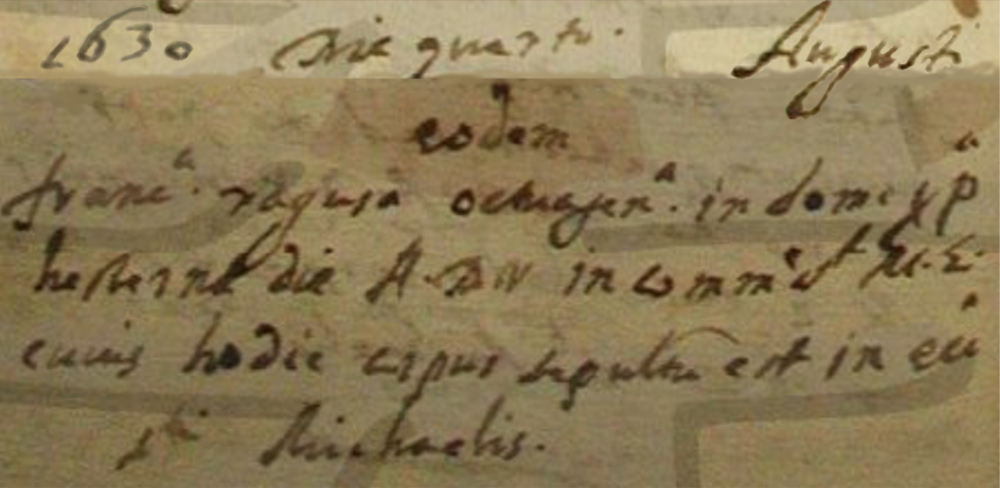 1630 Die quarto. Augusti
eodem
franc.a ragusa octuagen.a in domo pp.a
hesterna die A. D. N in comm.e st M. E.
cuius hodie corpus sepultu est in ecc.a
s.ti Michaelis.